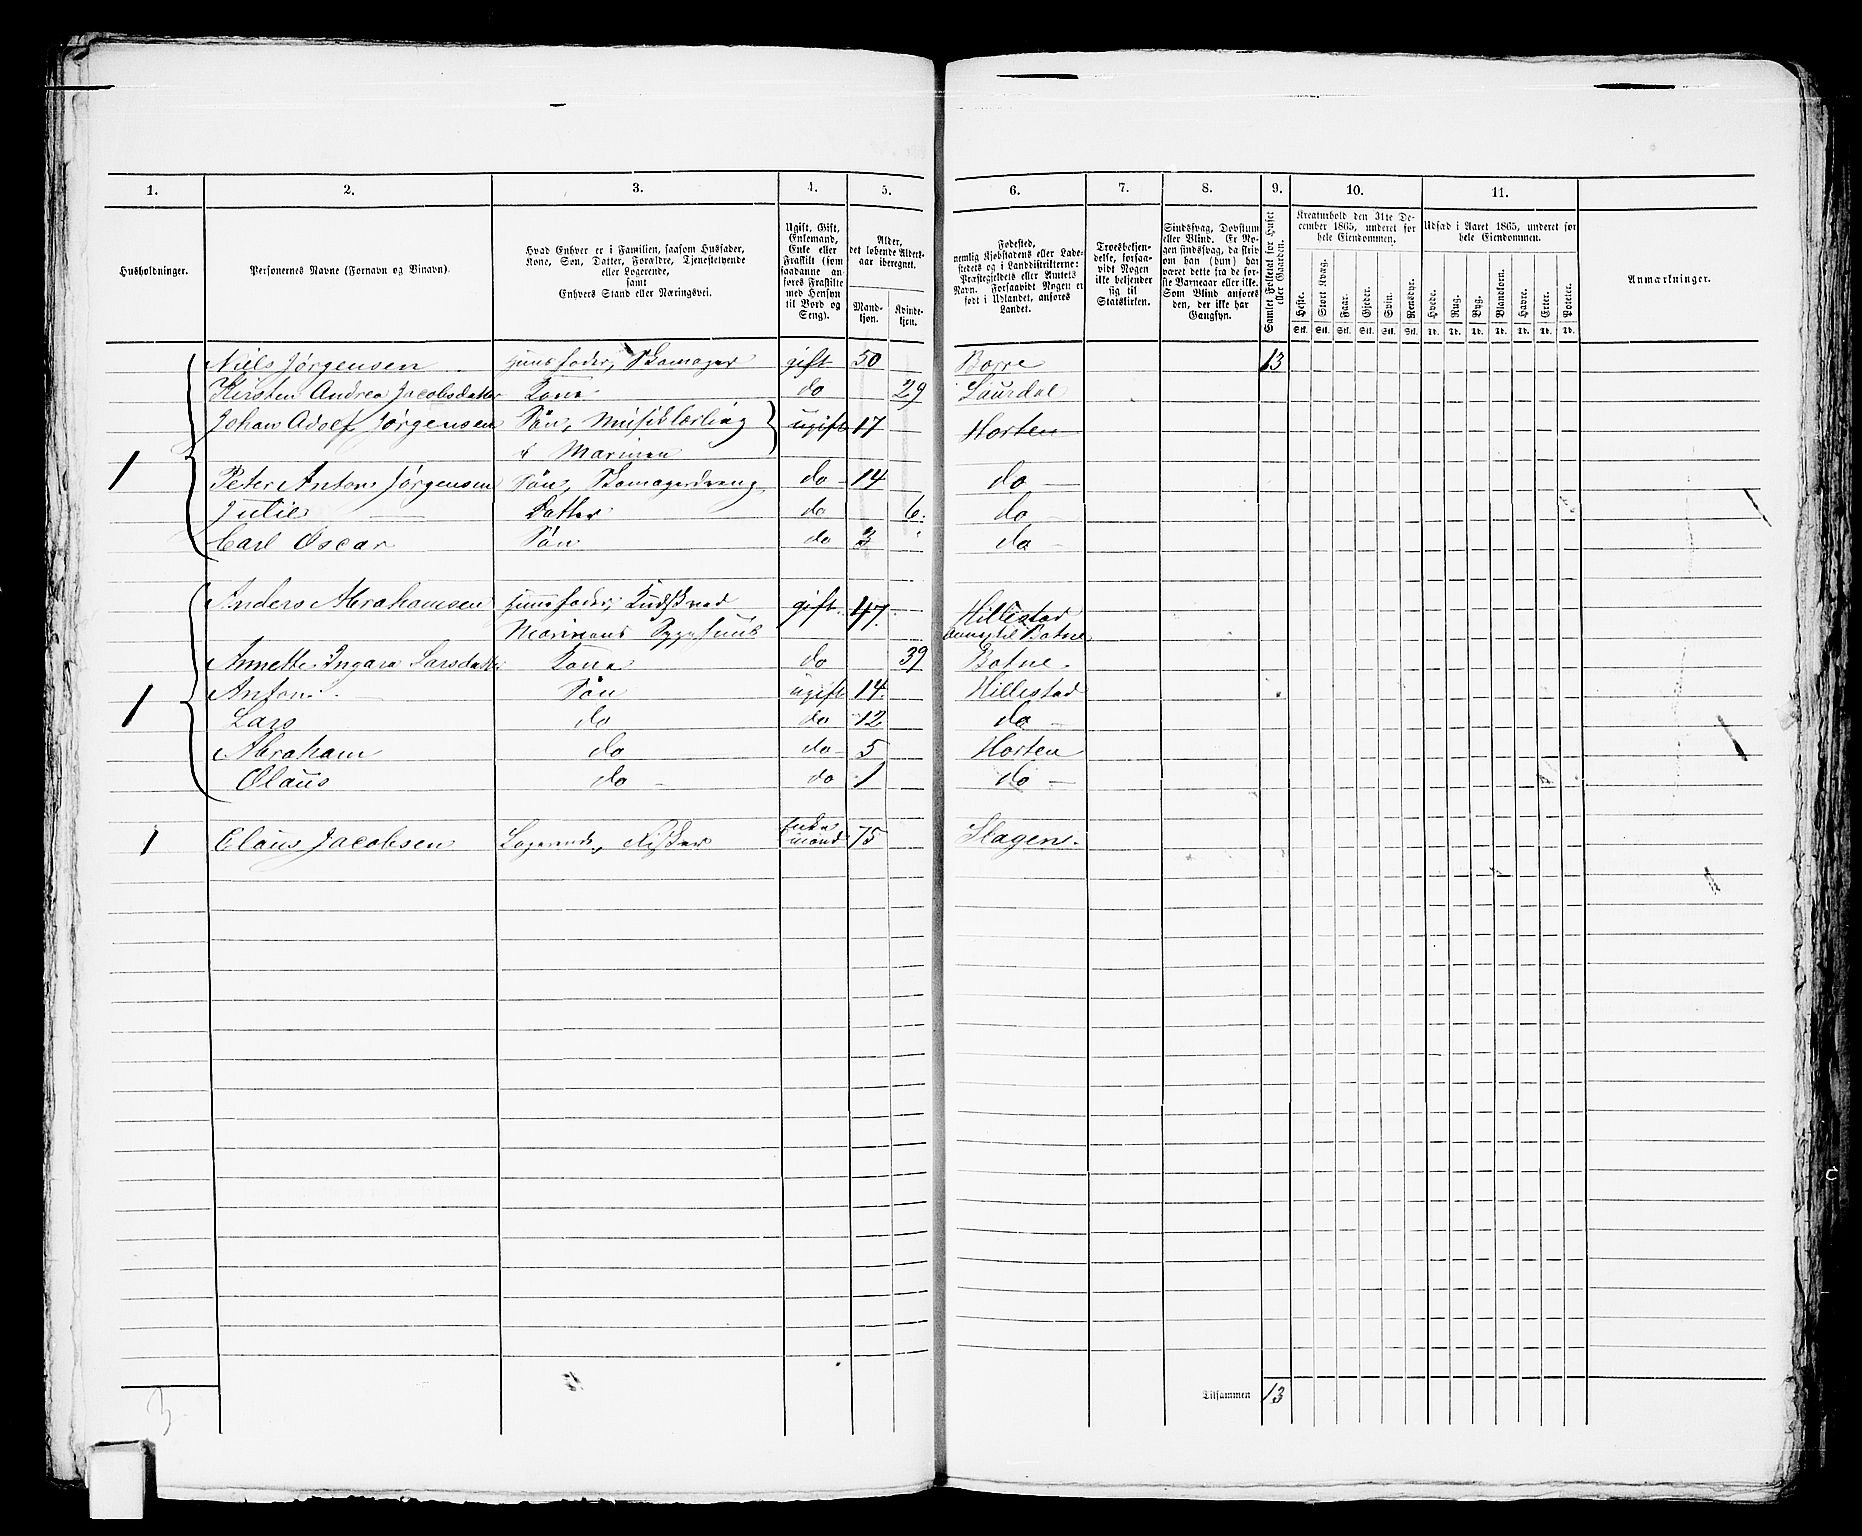 1. 2. 3. 4. 5. 6. 7. 8. 9. 10. 11.
Husholdninger.
Personernes Navne (Fornavn og Binavn).
Hvad Enhver er i Familien, saasom Husfader,
Kone, Søn, Datter, Forældre, Tjenestetyende
eller Logerende,
samt
Enhvers Stand eller Næringsvei.
Ugift, Gift,
Enkemand,
Enke eller
Fraskilt (som
saadanne an-
føres Fraskilte
med Hensyn
til Bord og
Seng).
Alder,
det løbende Alders-
aar iberegnet.
Mand-
kjøn.
Kvinde-
kjøn.
Fødested,
nemlig Kjøbstadens eller Lade-
stedets og i Landdistrikterne:
Præstegjeldets eller Amtets
Navn. Forsaavidt Nogen er
født i Udlandet, anføres
Landet.
Troesbekjen-
delse, forsaa-
vidt Nogen
ikke bekjender
sig til
Statskirken.
Sindssvag, Døvstum
eller Blind. Er No-
gen sindssvag, da skrives
om han (hun) har
været dette fra de før-
ste Barneaar eller ikke.
Som Blind anføres
den, der ikke har
Gangsyn.
Samlet Folketal for Huset
eller Gaarden.
Kreaturhold den 31te De-
cember 1865, underet for
hele Eiendommen.
Heste. Stort Kvæg. Faar. Gjeder. Svin. Rensdyr.
Stk. Stk. Stk. Stk. Stk. Stk.
Udsæd i Aaret 1865, underet for
hele Eiendommen.
Hvede. Rug. Byg. Blandkorn. Havre. Erter. Poteter.
Td. Td. Td. Td. Td. Td. Td.
Anmærkninger.
Niels Jørgensen Huusfader, Skomager gift 50 Borre 13
Kirsten Andrea Jacobsdatter Kone do 29 Laurdal
Johan Adolf Jørgensen Søn, Musiklærling ugift 17 Horten
v Marinen
1 Peter Anton Jørgensen Søn, Skomagerdreng do 14 do
Julie Datter do 6 do
Carl Oscar Søn do 3 do
Anders Abrahamsen Huusfader, Kudsk ved gift 47 Hillestad
Marinens Sygehuus Annex til Botne
Annette Ingara Larsdatter Kone do 39 Botne
1 Anton Søn ugift 14 Hillestad
Lars do do 12 do
Abraham do do 5 Horten
Olaus do do 1 do
1 Claus Jacobsen Logerende, Fisker Enkemand 75 Slagen
Tilsammen 13
3